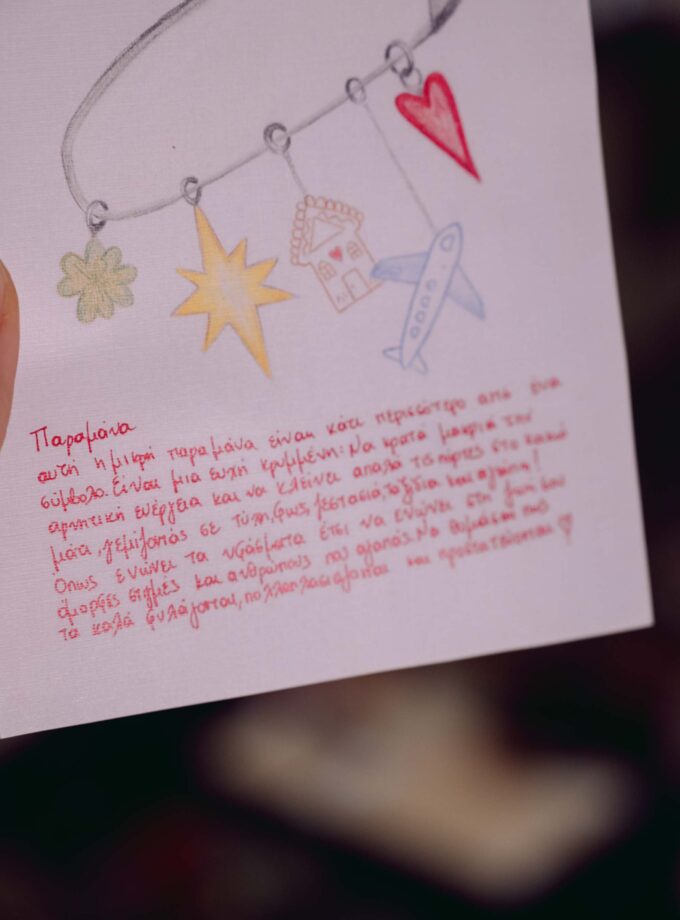 Παραμάνα
αυτή η μικρή παραμάνα είναι κάτι περισσότερο από ένα
σύμβολο. Είναι μια ευχή κρυμμένη: Να κρατά μακριά την
αρνητική ενέργεια και να κλείνει απαλά τις πόρτες στο κακό
μάτι, γεμίζοντάς σε τύχη, φως, ζεστασιά, ταξίδια και αγάπη!
Όπως ενώνει τα υφάσματα έτσι να ενώνει στη ζωή σου
όμορφες στιγμές και ανθρώπους που αγαπάς. Να θυμάσαι πως
τα καλά φυλάγονται, πολλαπλασιάζονται και προστατεύονται ♡